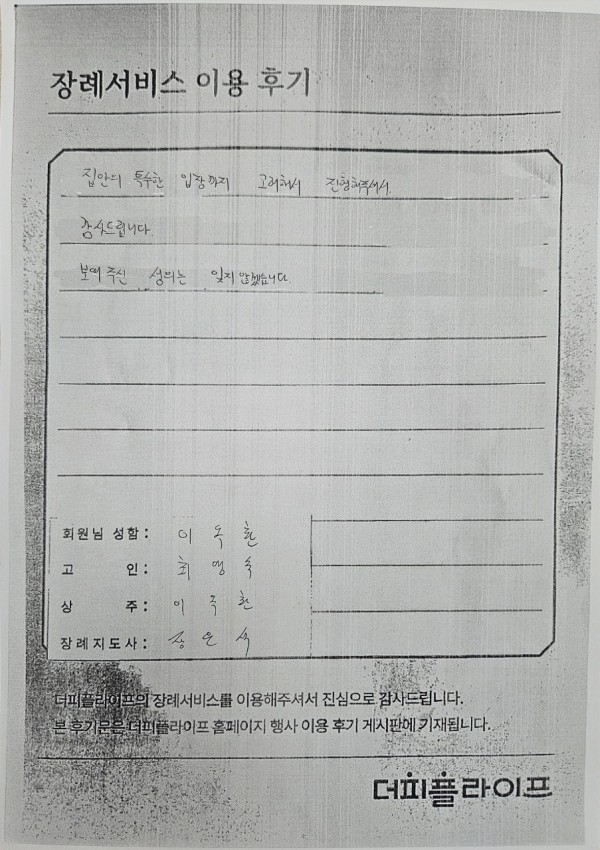 장례서비스 이용 후기
집안의 특수한 입장까지 고려해서 진행해주셔서
감사드립니다.
보여 주신 성의는 잊지 않겠습니다
회원님 성함 : 이 환
고 인 : 최 영 숙
상 주 : 이 환
장례지도사 : 장 은 석
더피플라이프의 장례서비스를 이용해주셔서 진심으로 감사드립니다.
본 후기문은 더피플라이프 홈페이지 행사 이용 후기 게시판에 기재됩니다.
더피플라이프